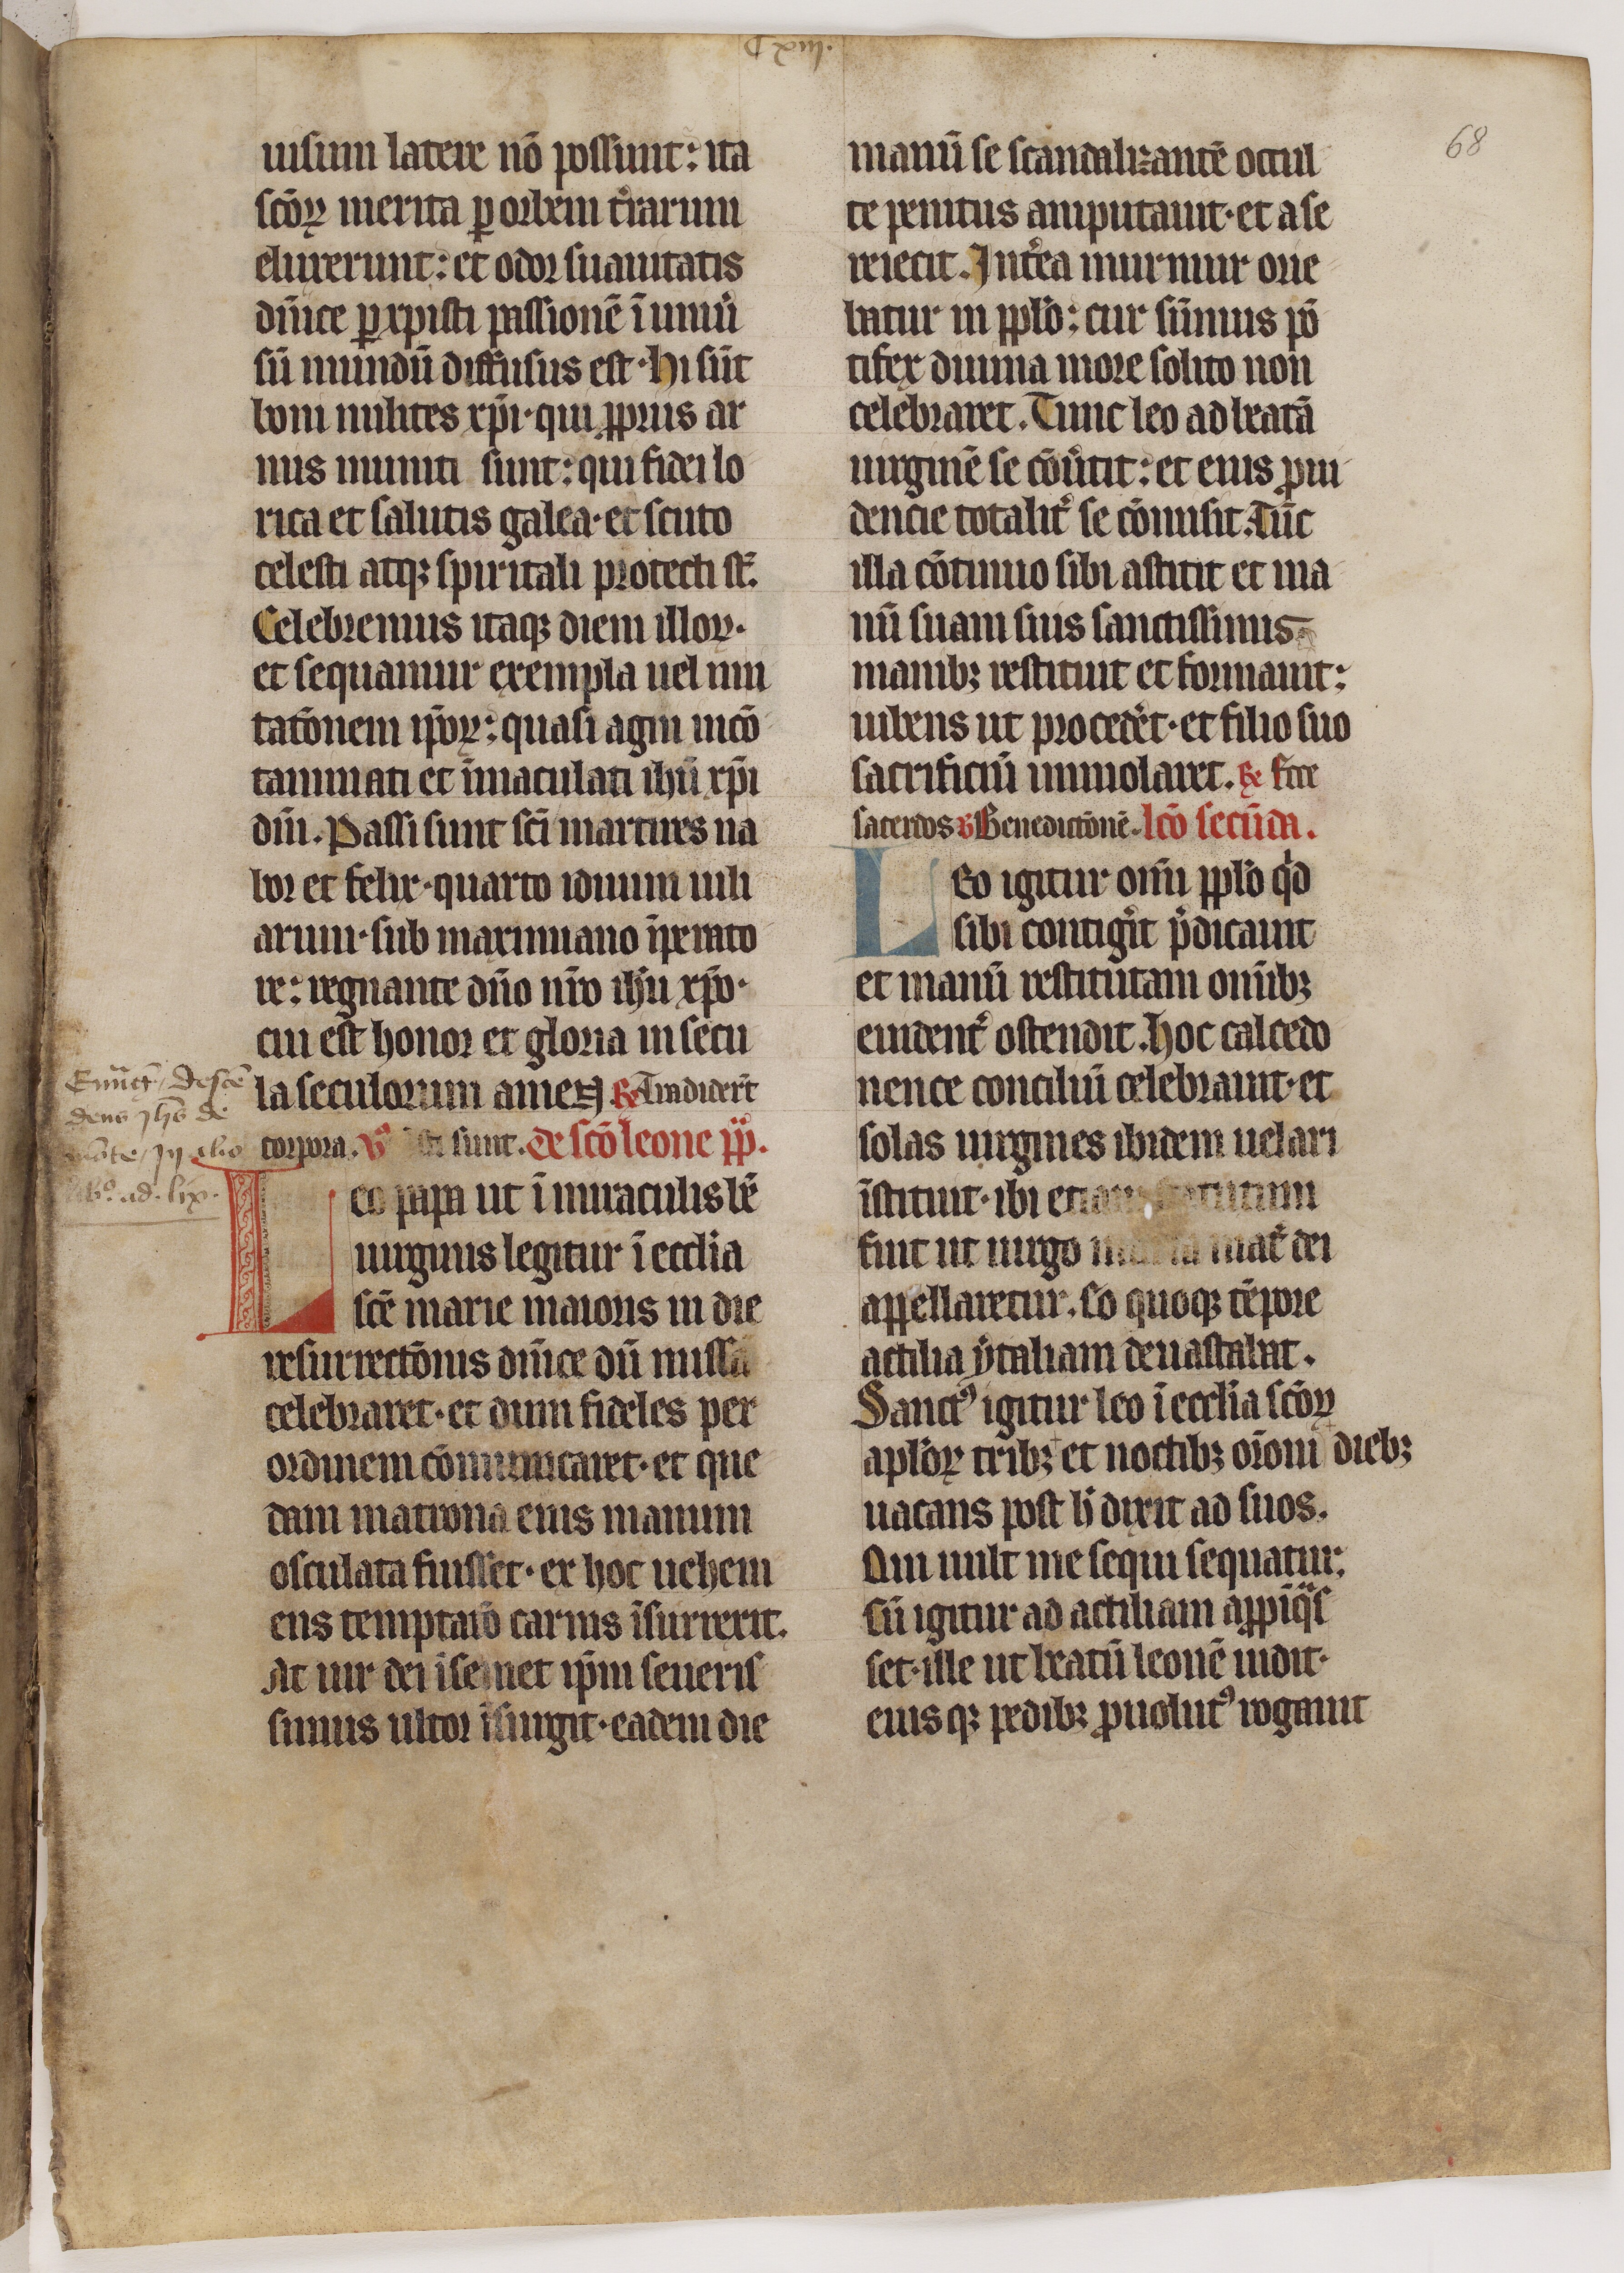 68
uisum latere nō possunt: ita
scōꝝ merita ꝑ orbem t̾rarum
eluxerunt: et odor suauitatis
dn̄ice ꝑ xp̄isti passionē ī uniū̾
sū mundū diffusus est· hi sūt
boni milites xp̄i· qui ꝓpriis ar
mis muniti sunt: qui fidei lo
rica et salutis galea· et scuto
celesti atqꝫ spiritali protecti st̄.
Celebremus itaqꝫ diem illoꝝ·
et sequamur exempla uel imi
tatōnem ip̄oꝝ: quasi agni incō
taminati et īmaculati ihū xp̄i
dn̄i. Passi sunt sc̄i martires na
bor et felix· quarto iduum iuli
arum· sub maximiano īperato
re: regnante dn̄o nr̄o ihū xp̄o·
cui est honor et gloria in secu
la seculorum amen ℟ Tradider̄t
corpora. ℣ sti sunt. de scō leone pp̄.
Leo papa ut ī miraculis bē
uirginis legitur ī ecclīa
scē marie maioris in die
resurrectōnis dn̄ice dū missa
celebraret· et dum fideles per
ordinem cōmunicaret· et que
dam matrona eius manum
osculata fuisset· ex hoc uehem
ens temptatō carnis īsurrexit.
At uir dei ī semet ip̄m seueris
simus ultor īsurgit· eadem die
manū se scandalizantē occul
te penitus amputauit· et a se
reiecit. Int̾ea murmur orie
batur in pp̄lo: cur sūmus pō
tifex diuina more solito non
celebraret. Tunc leo ad beatā
uirginē se cōu̾tit: et eius ꝓui
dencie totalit̾ se cōmisit. Tūc
illa cōtinuo sibi astitit et ma
nū suam suis sanctissimis
manibꝫ restituit et formauit:
iubens ut proceder̄t· et filio suo
sacrificiū immolaret. ℟ Ecce
sacerdos ℣ Benedictōnē. lc̄o secūda.
Leo igitur om̄i pp̄lo qd̾
sibi contig̾it p̄dicauit
et manū restitutam om̄ibꝫ
euident̾ ostendit. hoc calcedo
nence conciliū celebrauit· et
solas uirgines ibidem uelari
īstituit· ibi etiam statutum
fuit ut uirgo maria mat̾ dei
appellaretur. Eo quoqꝫ tēpore
actilia ytaliam deuastabat.
Sanctꝰ igitur leo ī ecclīa scōꝝ
apl̄oꝝ tribꝫ et noctibꝫ or̄oni diebꝫ
uacans post h̾ dixit ad suos.
Qui uult me sequi sequatur;
cū igitur ad actiliam apꝓīqͣs
set· ille ut beatū leonē uidit·
eiusqꝫ pedibꝫ ꝓuolutꝰ rogauit
dens Jhs de